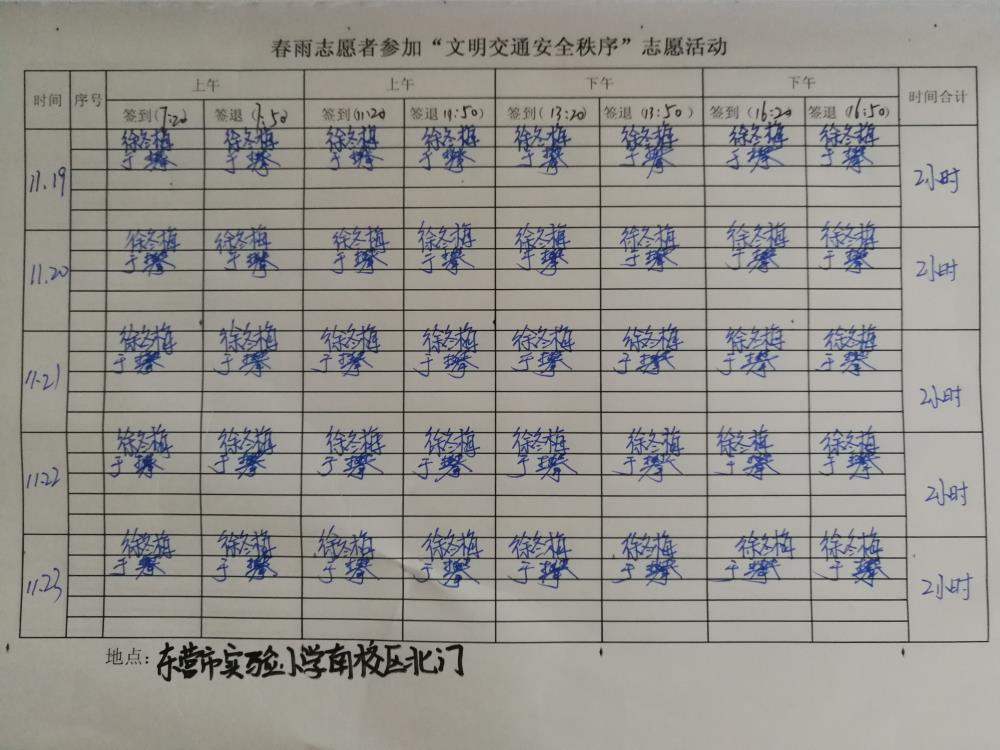 春雨志愿者参加“文明交通安全秩序”志愿活动
时间 序号 上午 上午 下午 下午 时间合计
签到(7:20 签退(7:50 签到(11:20 签退 11:50) 签到(13:20) 签退(13:50) 签到(16:20 签退(16:50)
徐冬梅 徐冬梅 徐冬梅 徐冬梅 徐冬梅 徐冬梅 徐冬梅 徐冬梅
于攀 于攀 于攀 于攀 于攀 于攀 于攀 于攀
11.19 2小时
徐冬梅 徐冬梅 徐冬梅 徐冬梅 徐冬梅 徐冬梅 徐冬梅 徐冬梅
于攀 于攀 于攀 于攀 于攀 于攀 于攀 于攀
11.20 2小时
徐冬梅 徐冬梅 徐冬梅 徐冬梅 徐冬梅 徐冬梅 徐冬梅 徐冬梅
于攀 于攀 于攀 于攀 于攀 于攀 于攀 于攀
11.21 2小时
徐冬梅 徐冬梅 徐冬梅 徐冬梅 徐冬梅 徐冬梅 徐冬梅 徐冬梅
于攀 于攀 于攀 于攀 于攀 于攀 于攀 于攀
11.22 2小时
徐冬梅 徐冬梅 徐冬梅 徐冬梅 徐冬梅 徐冬梅 徐冬梅 徐冬梅
于攀 于攀 于攀 于攀 于攀 于攀 于攀 于攀
11.23 2小时
地点：东营市实验小学南校区北门